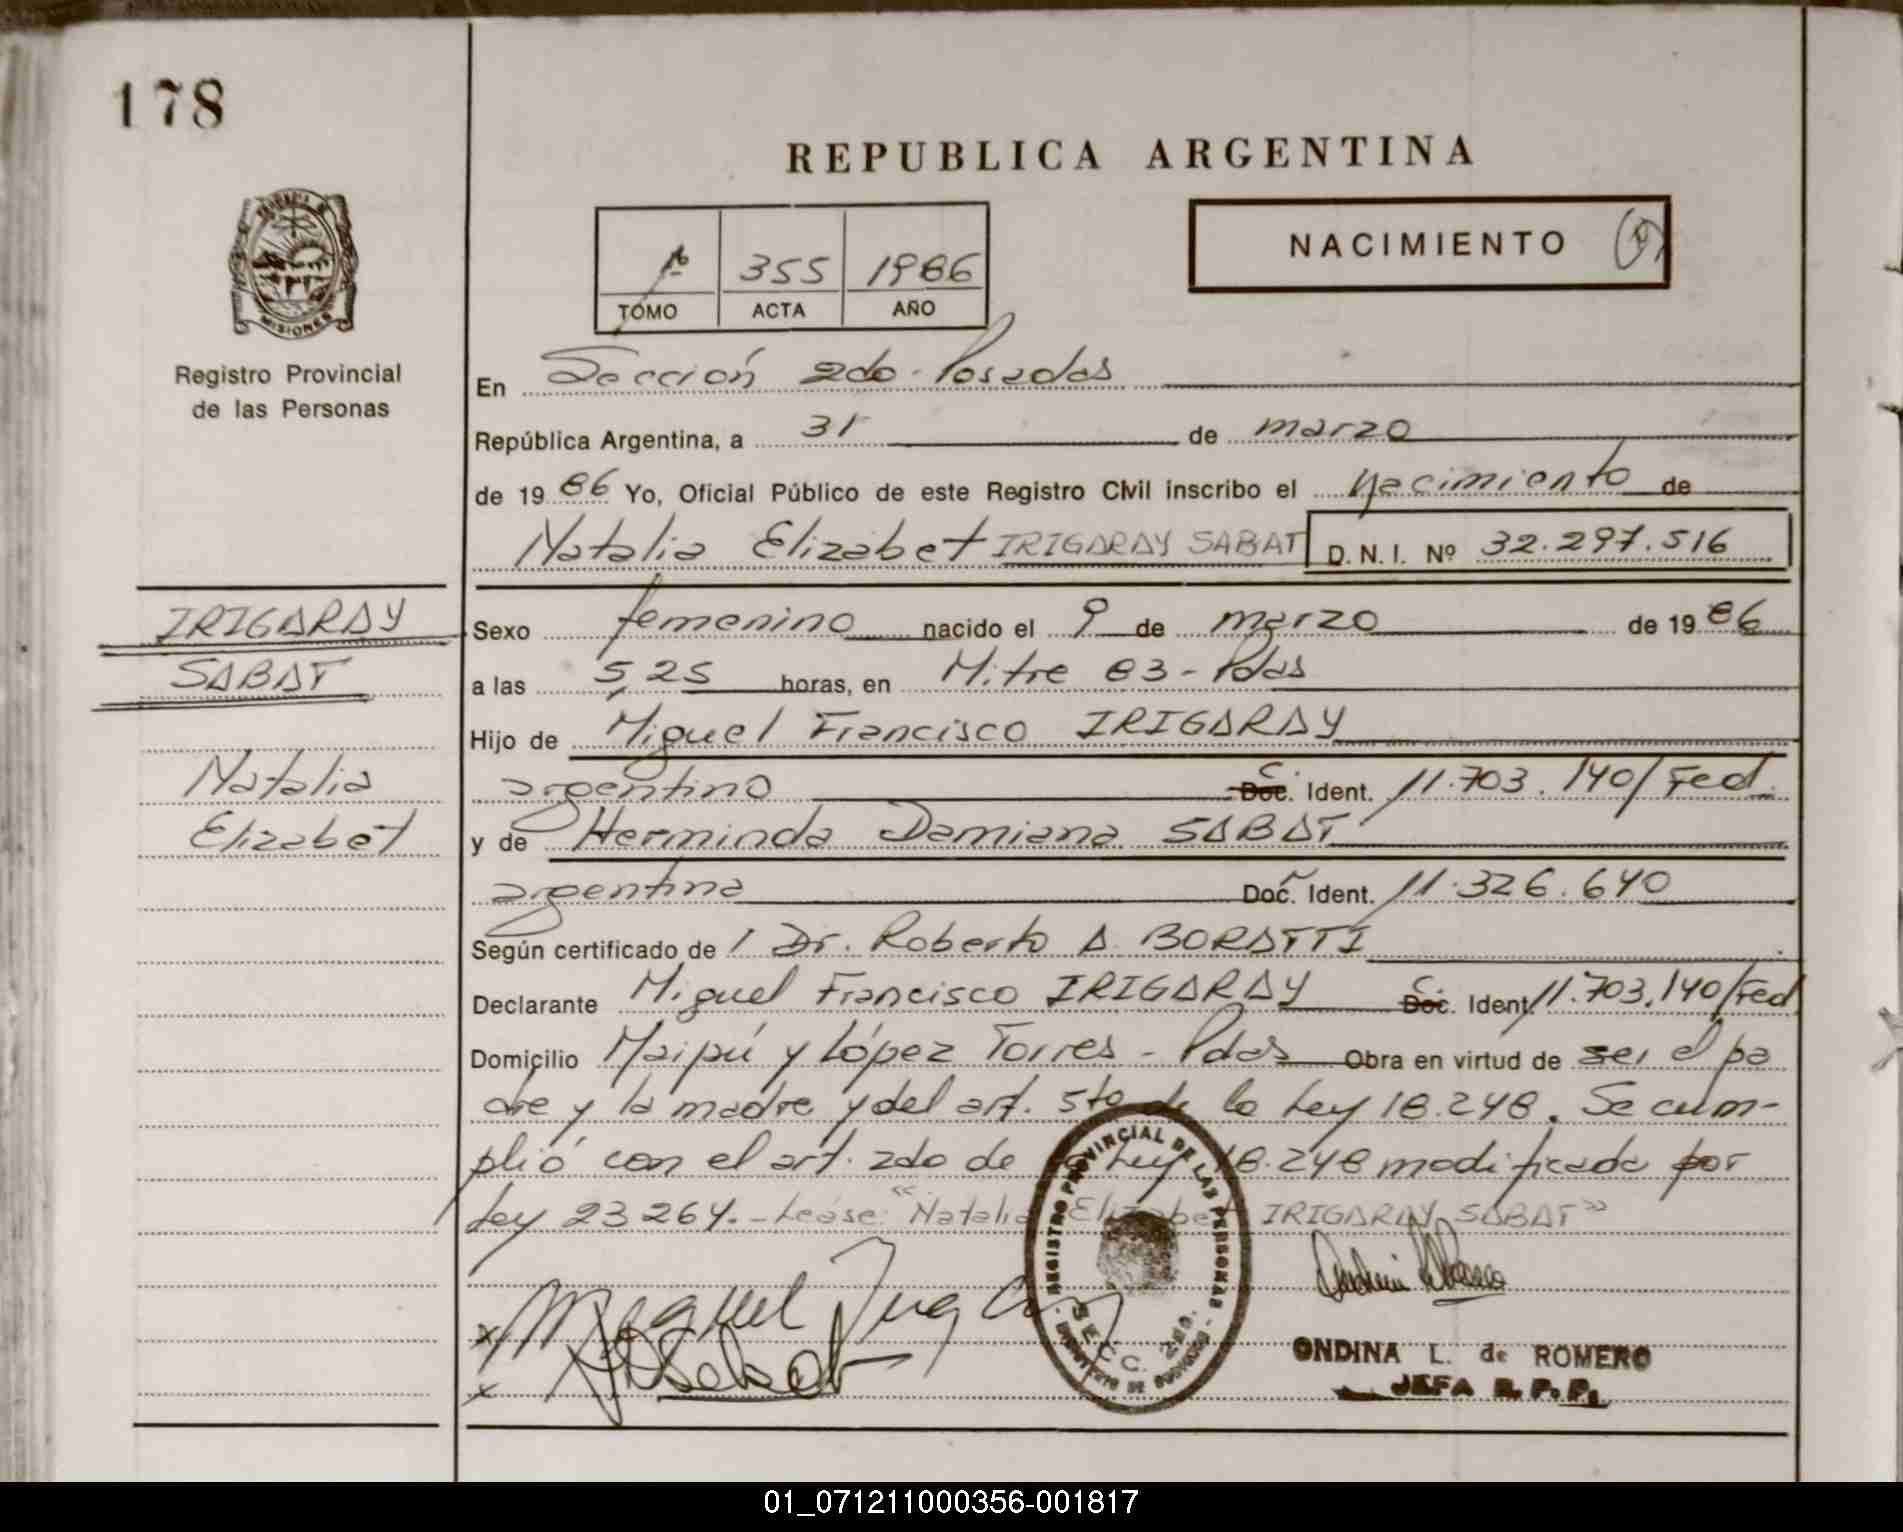 178
REPUBLICA ARGENTINA
NACIMIENTO
1º 355 1986
TOMO ACTA AÑO
MISIONES
Registro Provincial
de las Personas
En Sección 2do. Posadas
República Argentina, a 31 de marzo
de 1986 Yo, Oficial Público de este Registro Civil inscribo el Nacimiento de
Natalia Elizabet IRIGARAY SABAT D.N.I. Nº 32.297.516
IRIGARAY
SABAT
Natalia
Elizabet
Sexo femenino nacido el 9 de marzo de 1986
a las 5,25 horas, en Mitre 83 - Pdas
Hijo de Miguel Francisco IRIGARAY
argentino C. Ident. 11.703.140/Fed.
y de Herminda Damiana SABAT
argentina Doc. Ident. 11.326.640
Según certificado de l Dr. Roberto A. BORATTI
Declarante Miguel Francisco IRIGARAY C. Ident. 11.703.140/Fed
Domicilio Maipú y López Torres - Pdas Obra en virtud de ser el pa
dre y la madre y del art. 5to de la Ley 18.248. Se cum-
plió con el art. 2do de la Ley 18.248 modificada por
Ley 23264. - Léase: "Natalia Elizabet IRIGARAY SABAT"
REGISTRO PROVINCIAL DE LAS PERSONAS
SECC. 2do.
ONDINA L. de ROMERO
JEFA R.P.P.
01_071211000356-001817